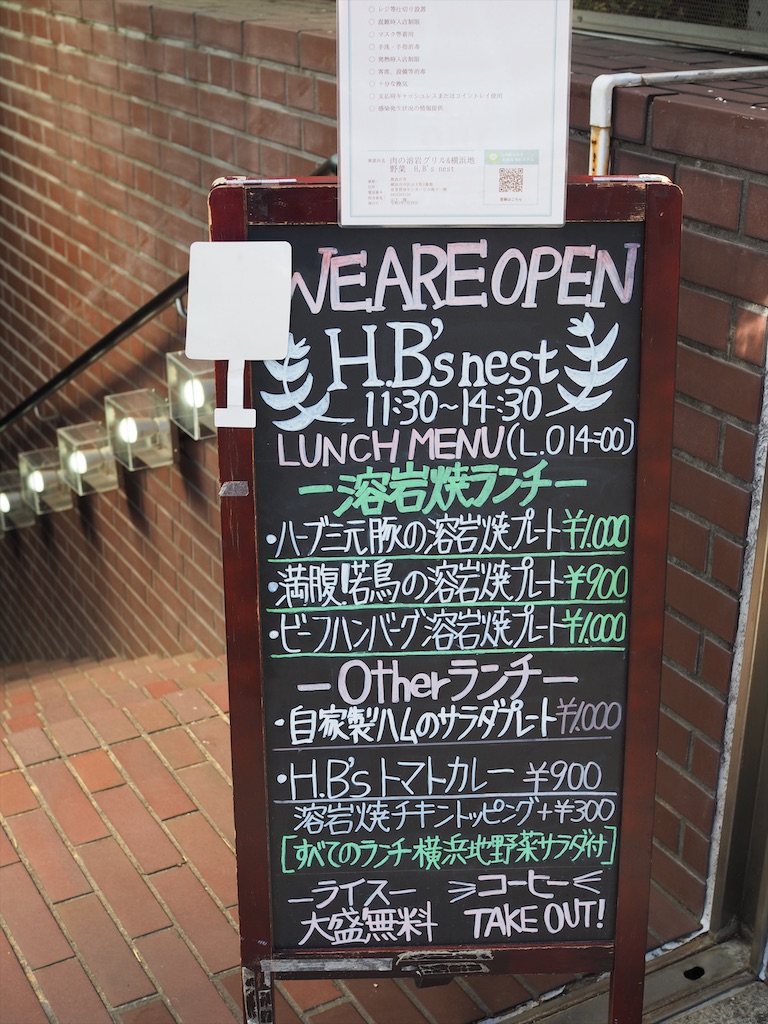 ○ レジ等仕切り設置
○ 混雑時入店制限
○ マスク等着用
○ 手洗・手指消毒
○ 発熱時入店制限
○ 客席、設備等消毒
○ 十分な換気
○ 支払時キャッシュレスまたはコイントレイ使用
○ 感染発生状況の情報提供
肉の溶岩グリル&横浜地
野菜 H.B's nest
WE ARE OPEN
H.B's nest
11:30~14:30
LUNCH MENU(L.O 14:00)
ー溶岩焼ランチー
・ハーブ三元豚の溶岩焼プレート ¥1.000
・満腹!若鳥の溶岩焼プレート ¥900
・ビーフハンバーグ溶岩焼プレート ¥1.000
ーOtherランチー
・自家製ハムのサラダプレート ¥1.000
・H.B's トマトカレー ¥900
溶岩焼チキントッピング+¥300
[すべてのランチ横浜地野菜サラダ付]
ーライスー コーヒー
大盛無料 TAKE OUT!